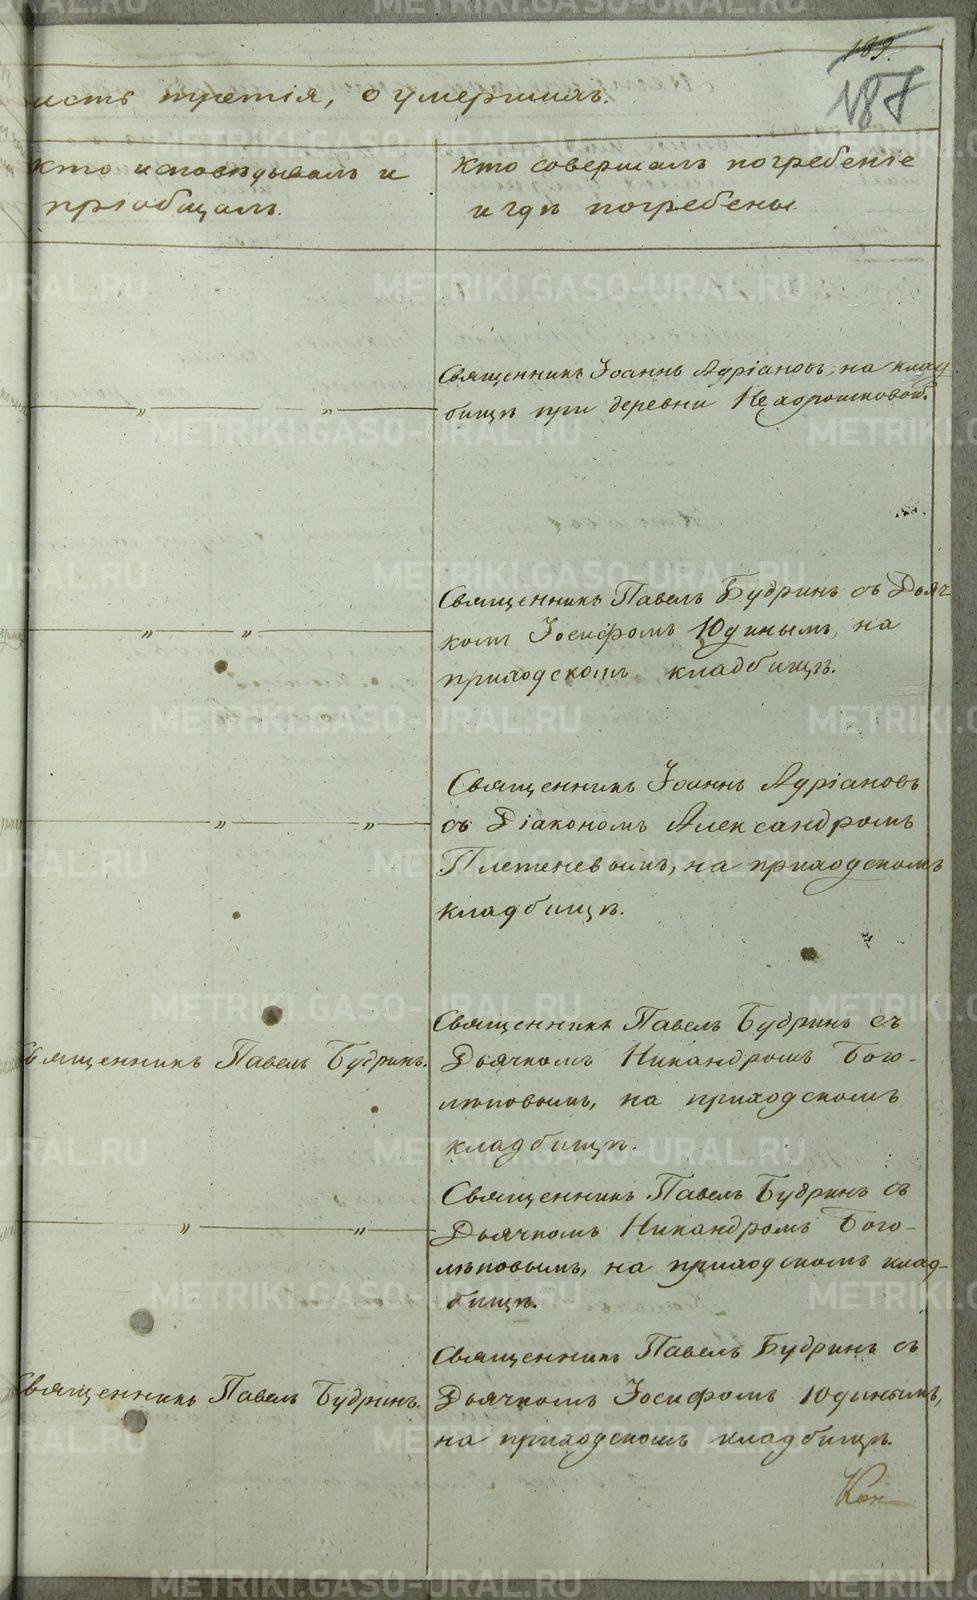 189.
187
исть третія, о умершихъ.
Кто исповѣдывалъ и
пріобщалъ.
Кто совершалъ погребеніе
и гдѣ погребены.
Священникъ Іоаннъ Адріановъ, на клад
бищѣ при деревни
— „ — „ —
Священникъ Павелъ Будринъ съ Дьяч
комъ Іосифомъ Юдинымъ, на
приходскомъ кладбищѣ.
— „ — „ —
Священникъ Іоаннъ Адріановъ
съ Діакономъ Александромъ
Плетеневымъ, на приходскомъ
кладбищѣ.
— „ — „ —
Священникъ Павелъ Будринъ.
Священникъ Павелъ Будринъ съ
Дьячкомъ Никандромъ Бого-
лѣповымъ, на приходскомъ
кладбищѣ.
— „ — „ —
Священникъ Павелъ Будринъ съ
Дьячкомъ Никандромъ Бого-
лѣповымъ, на приходскомъ клад-
бищѣ.
Священникъ Павелъ Будринъ.
Священникъ Павелъ Будринъ съ
Дьячкомъ Іосифомъ Юдинымъ,
на приходскомъ кладбищѣ.
METRIKI.GASO-URAL.RU